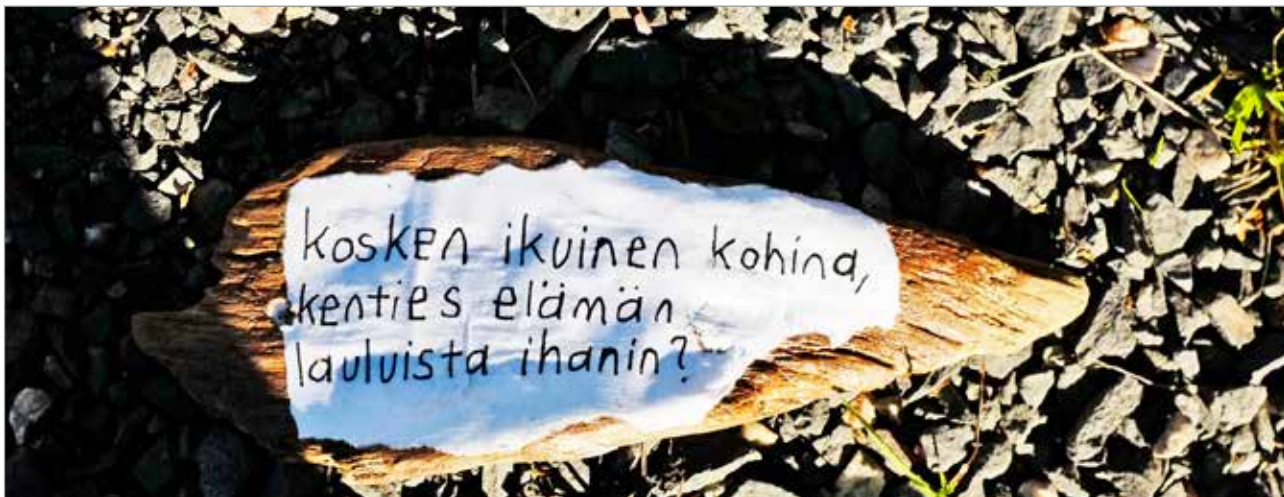 kosken ikuinen kohina,
kenties elämän
lauluista ihanin?